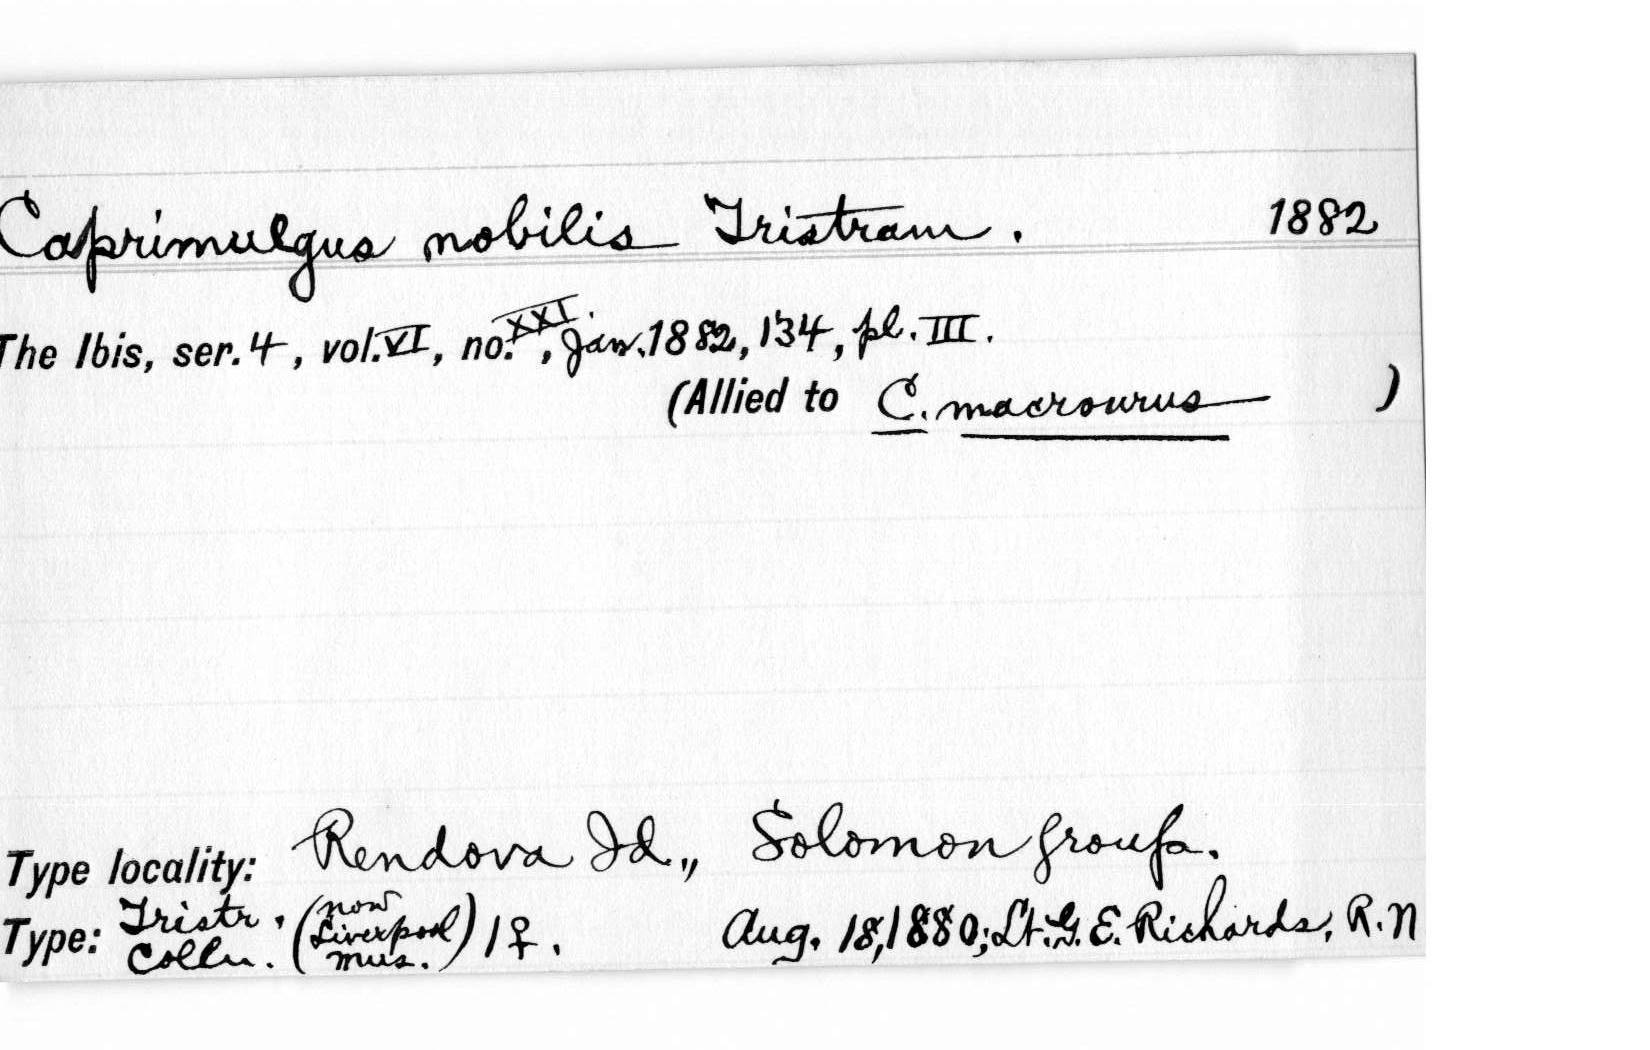 Caprimulgus nobilis Tristram. 1882
The Ibis, ser. 4, vol. VI, no. XXI., Jan. 1882, 134, pl. III.
(Allied to C. macrourus )
Type locality: Rendova Id., Solomon Group.
Type: Tristr. Colln. (now Liverpool Mus.) 1♀. Aug. 18, 1880; Lt. G. E. Richards, R.N